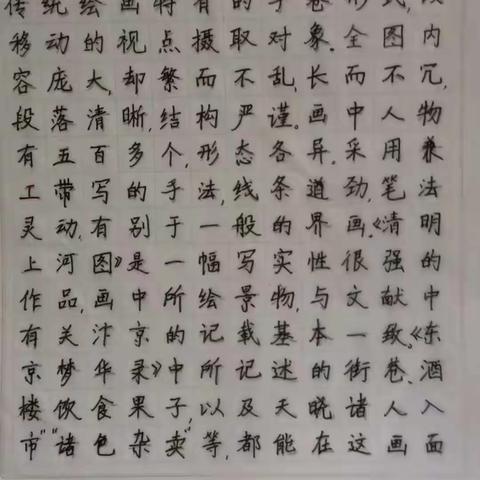 传统绘画特有的手卷形式,以
移动的视点摄取对象。全图内
容庞大,却繁而不乱,长而不冗,
段落清晰,结构严谨。画中人物
有五百多个,形态各异。采用兼
工带写的手法,线条遒劲,笔法
灵动,有别于一般的界画。《清明
上河图》是一幅写实性很强的
作品,画中所绘景物,与文献中
有关汴京的记载基本一致。《东
京梦华录》中所记述的街巷、酒
楼、饮食果子,以及天晓诸人入
市""诸色杂卖"等,都能在这画面